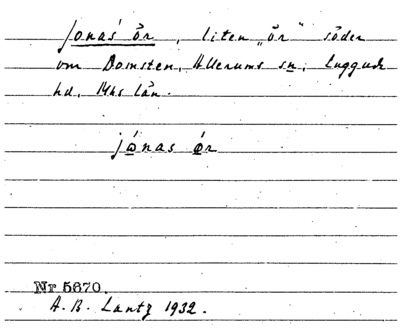 Jonas ör, liten "ör" söder
om Domsten, Allerums sn, Luggude
hd, Mhs län.
jónas ö́r
Nr 5670.
A. B. Lantz 1932.